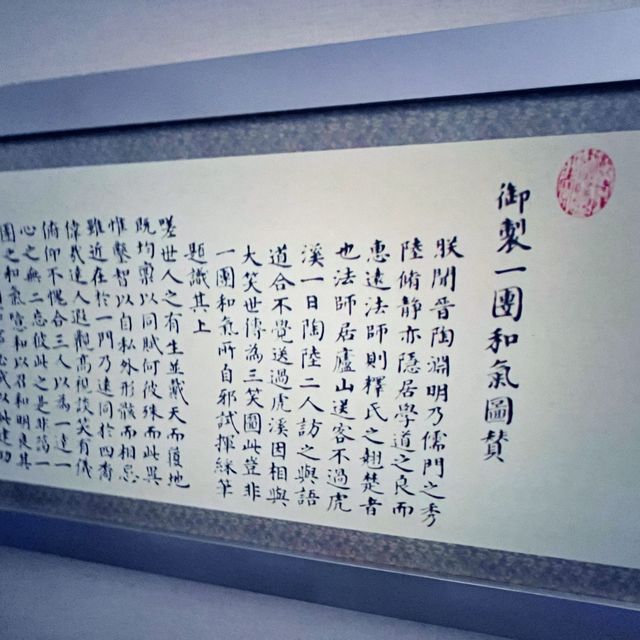 御製一團和氣圖賛
朕聞晉陶淵明乃儒門之秀
陸脩靜亦隱居學道之良而
惠遠法師則釋氏之翹楚者
也法師居廬山送客不過虎
溪一日陶陸二人訪之與語
道合不覺送過虎溪因相與
大笑世傳為三笑圖此豈非
一團和氣所自邪試揮綵筆
題識其上
嗟世人之有生並戴天而履地
既均禀以同賦何彼殊而此異
惟鑿智以自私外形骸而相忌
雖近在於一門乃遠同於四裔
偉哉達人遐觀高視談笑有儀
俯仰不愧合三人以為一達一
心之無二忘彼此之是非藹一
團之和氣噫和以召和明良其